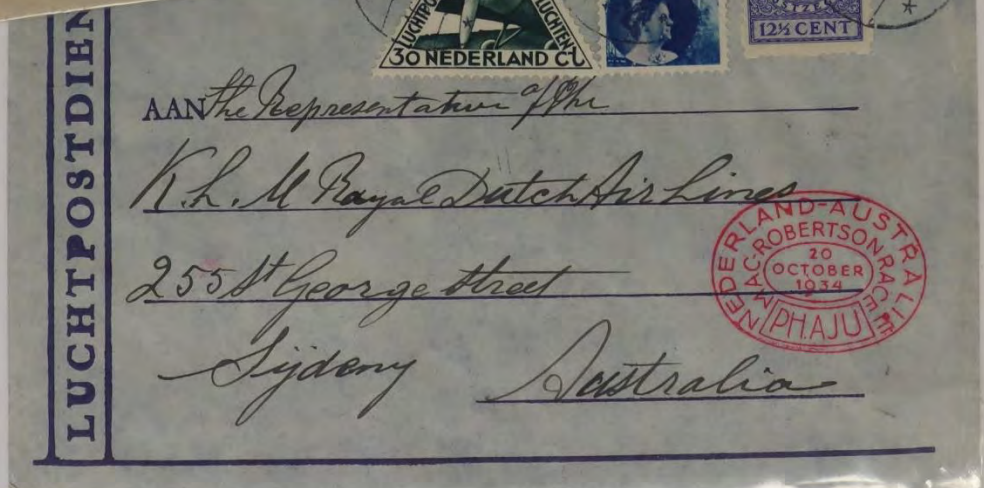 LUCHTPOSTDIEN
LUCHTPO
LUCHTEN
30 NEDERLAND CT
12½ CENT
AAN The Representative of the
K.L.M Royal Dutch Air Lines
255 St George Street
Sijdeny Australia
NEDERLAND-AUSTRALIE
MAC-ROBERTSON RACE
20
OCTOBER
1934
PH.AJU